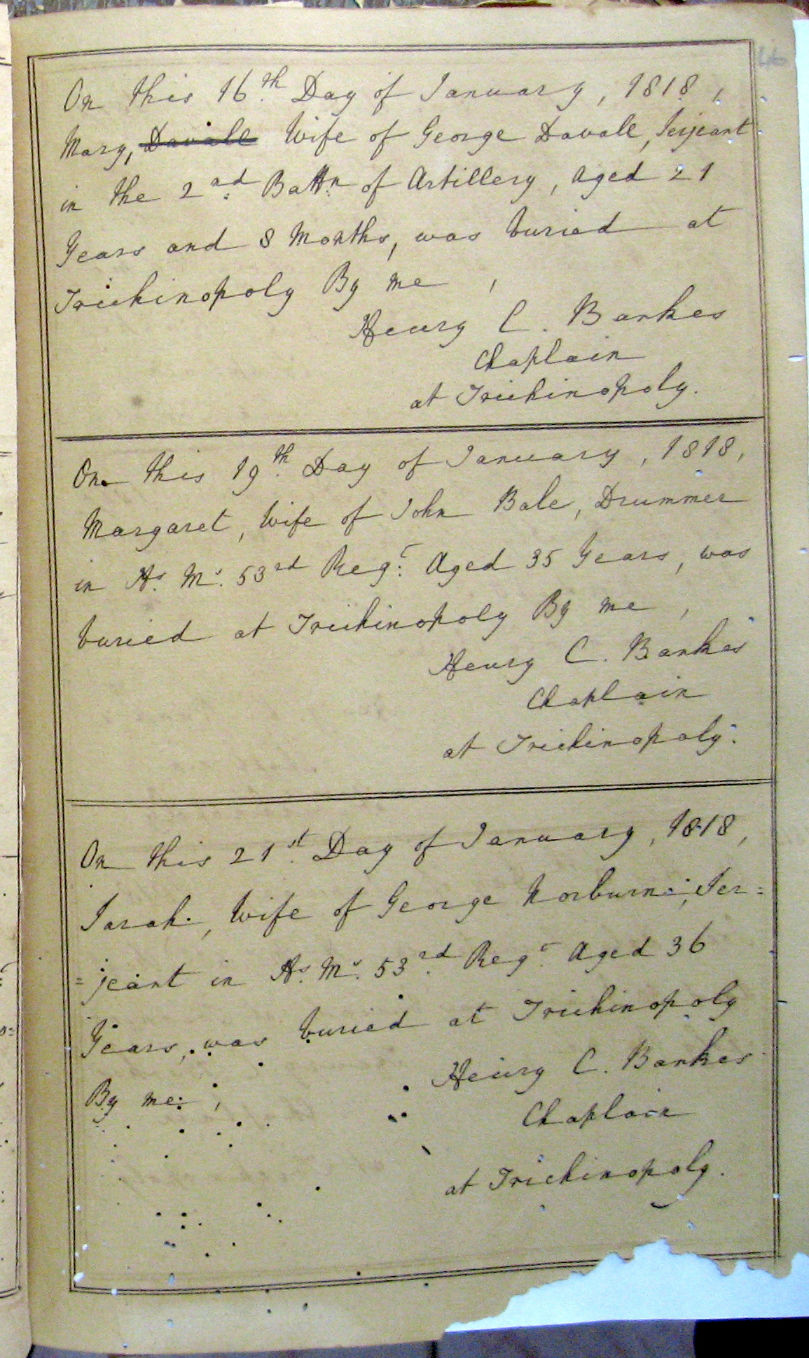 On this 16th Day of January, 1818,
Mary, Davale Wife of George Davale, Serjeant
in the 2nd Battn of Artillery, Aged 21
Years and 8 Months, was buried at
Trichinopoly By me,
Henry C. Bankes
Chaplain
at Trichinopoly.
On this 19th Day of January, 1818,
Margaret, Wife of John Bale, Drummer
in Hs. Ms. 53rd Regt. Aged 35 Years, was
buried at Trichinopoly By me,
Henry C. Bankes
Chaplain
at Trichinopoly.
On this 21st Day of January, 1818,
Sarah, Wife of George Norburn, Ser=
=jeant in Hs. Ms. 53rd Regt Aged 36
Years, was buried at Trichinopoly
By me,
Henry C. Bankes
Chaplain
at Trichinopoly.